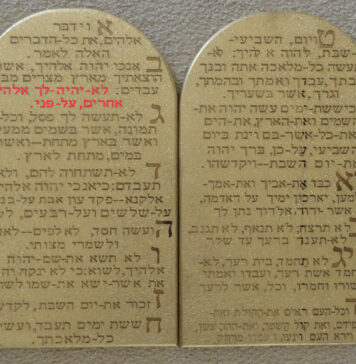 א וידבר
אלהים, את כל-הדברים
האלה לאמר
ב אנכי יהוה אלהי
הוצאתיך מארץ מצרים מב
עבדים: לא-יהיה-לך אלהי
אחרים, על-פני.
ג לא-תעשה לך פסל, וכל
תמונה, אשר בשמים ממע
ואשר בארץ מתחת—ואש
במים, מתחת לארץ.
ד לא-תשתחוה להם, ולא
תעבדם: כי אנכי יהוה אלהי
אל קנא—פקד עון אבת על-בנ
על-שלשים ועל-רבעים, לש
ה ועשה חסד, לאלפים—לאה
ולשמרי מצותי.
ו לא תשא את-שם-יהוה
אלהיך, לשוא: כי לא ינקה יה
את אשר-ישא את-שמו לש
ז זכור את-יום השבת, לקדש
ח ששת ימים תעבד, ועשי
כל-מלאכתך.
ט ויום, השביעי
שבת, ליהוה אלהיך:
תעשה כל-מלאכה אתה ובנך
ובתך, עבדך ואמתך ובהמתך,
וגרך, אשר בשעריך.
י כי ששת-ימים עשה יהוה את
השמים ואת-הארץ, את-הים
ואת-כל-אשר-בם וינח ביום
השביעי, על-כן, ברך יהוה
את-יום השבת—ויקדשהו.
יא כבד את-אביך ואת-אמך
למען, יארכון ימיך על האדמה,
אשר-יהוה אלהיך נתן לך
לא תרצח; לא תנאף, לא תגנב,
לא-תענה ברעך עד שקר
לא תחמד, בית רעך, לא
תחמד אשת רעך, ועבדו ואמתו
ושורו וחמרו, וכל, אשר לרעך
וכל-העם ראים את-הקולת ואת
ואת קול השפר, ואת-ההר, עשן,
וירא העם וינעו, ויעמדו מרחק